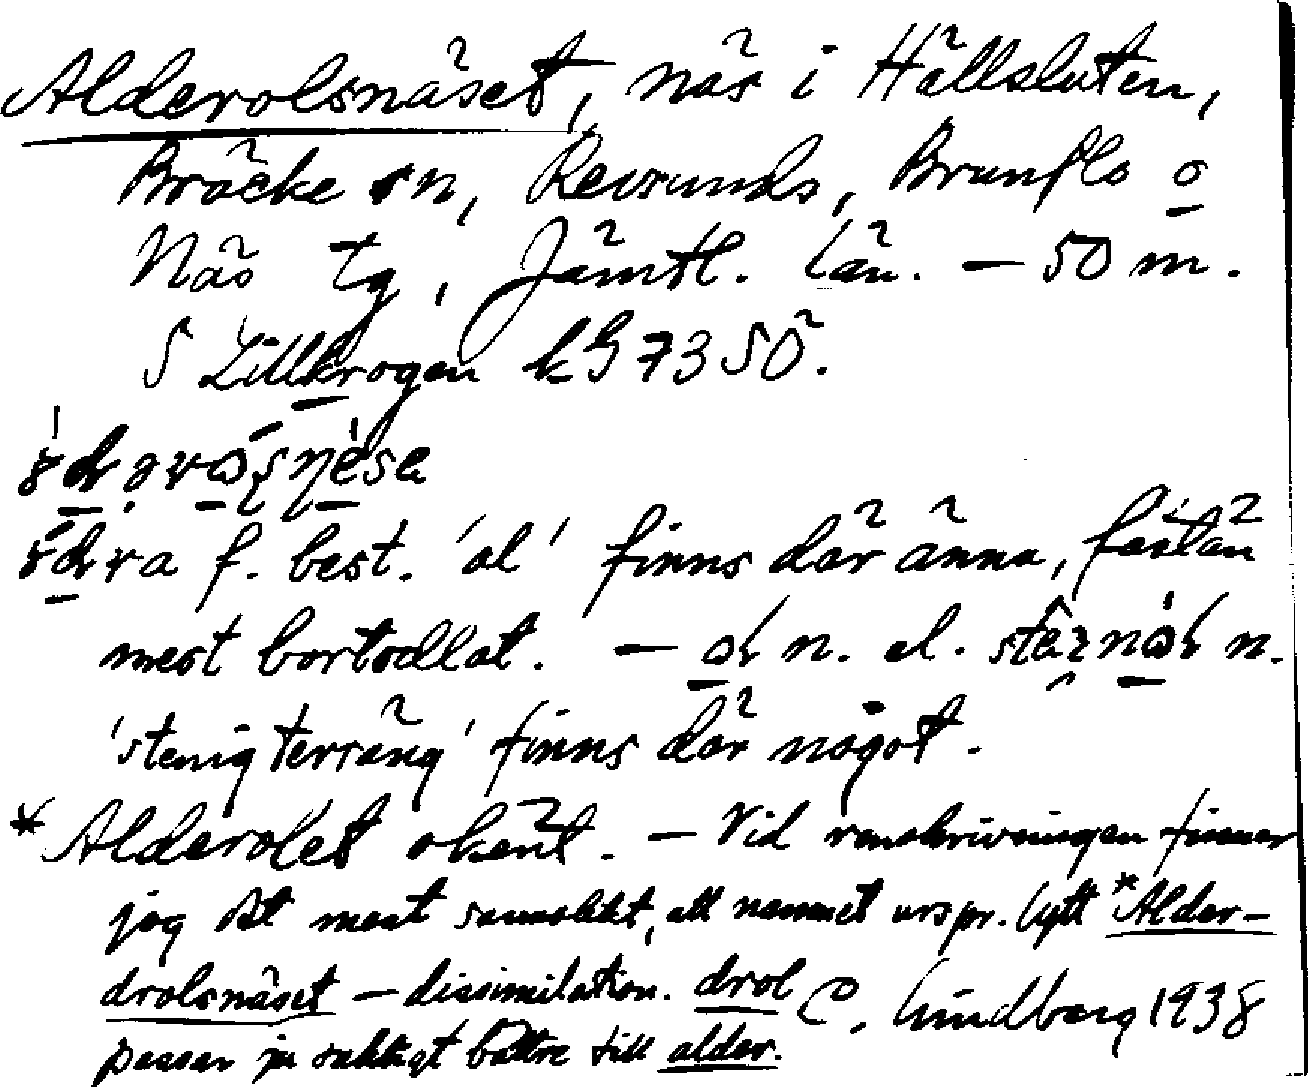 Alderolsnäset, näs i Hällsluten,
Bräcke sn, Revsunds, Brunflo o
Näs tg, Jämtl. län. — 50 m.
S Lillkrogen kG 7350.
f. best. 'al' finns där ännu, fastän
mest bortodlat. — n. el. n.
'stenig terräng' finns där något.
* Alderolet okänt. — Vid renskrivningen finner
jag det mest sannolikt, att namnet urspr. lytt *Alder-
drolsnäset — dissimilation. drol
passar ju sakligt bättre till alder.
C. Lindberg 1938